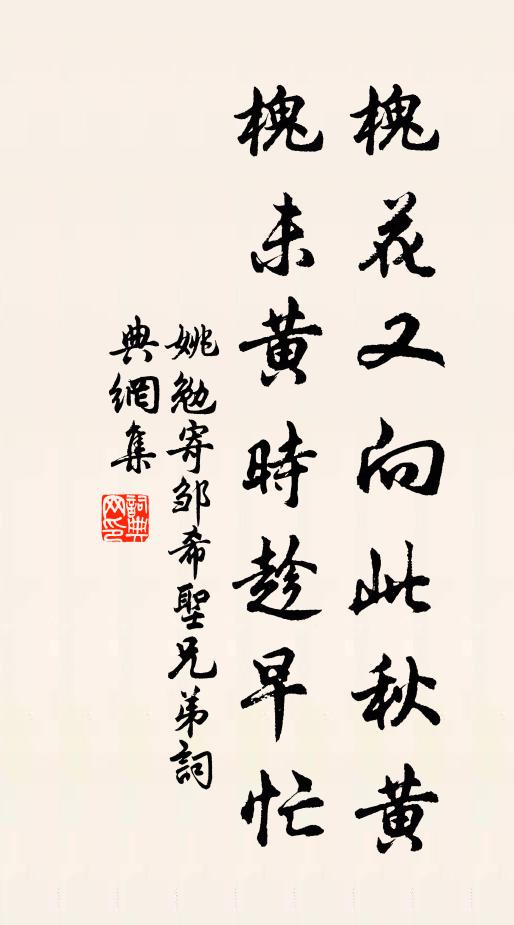 槐花又向此秋黄
槐未黄時趁早忙
姚勉寄邹希聖兄弟詞
典網集
詞典
网印